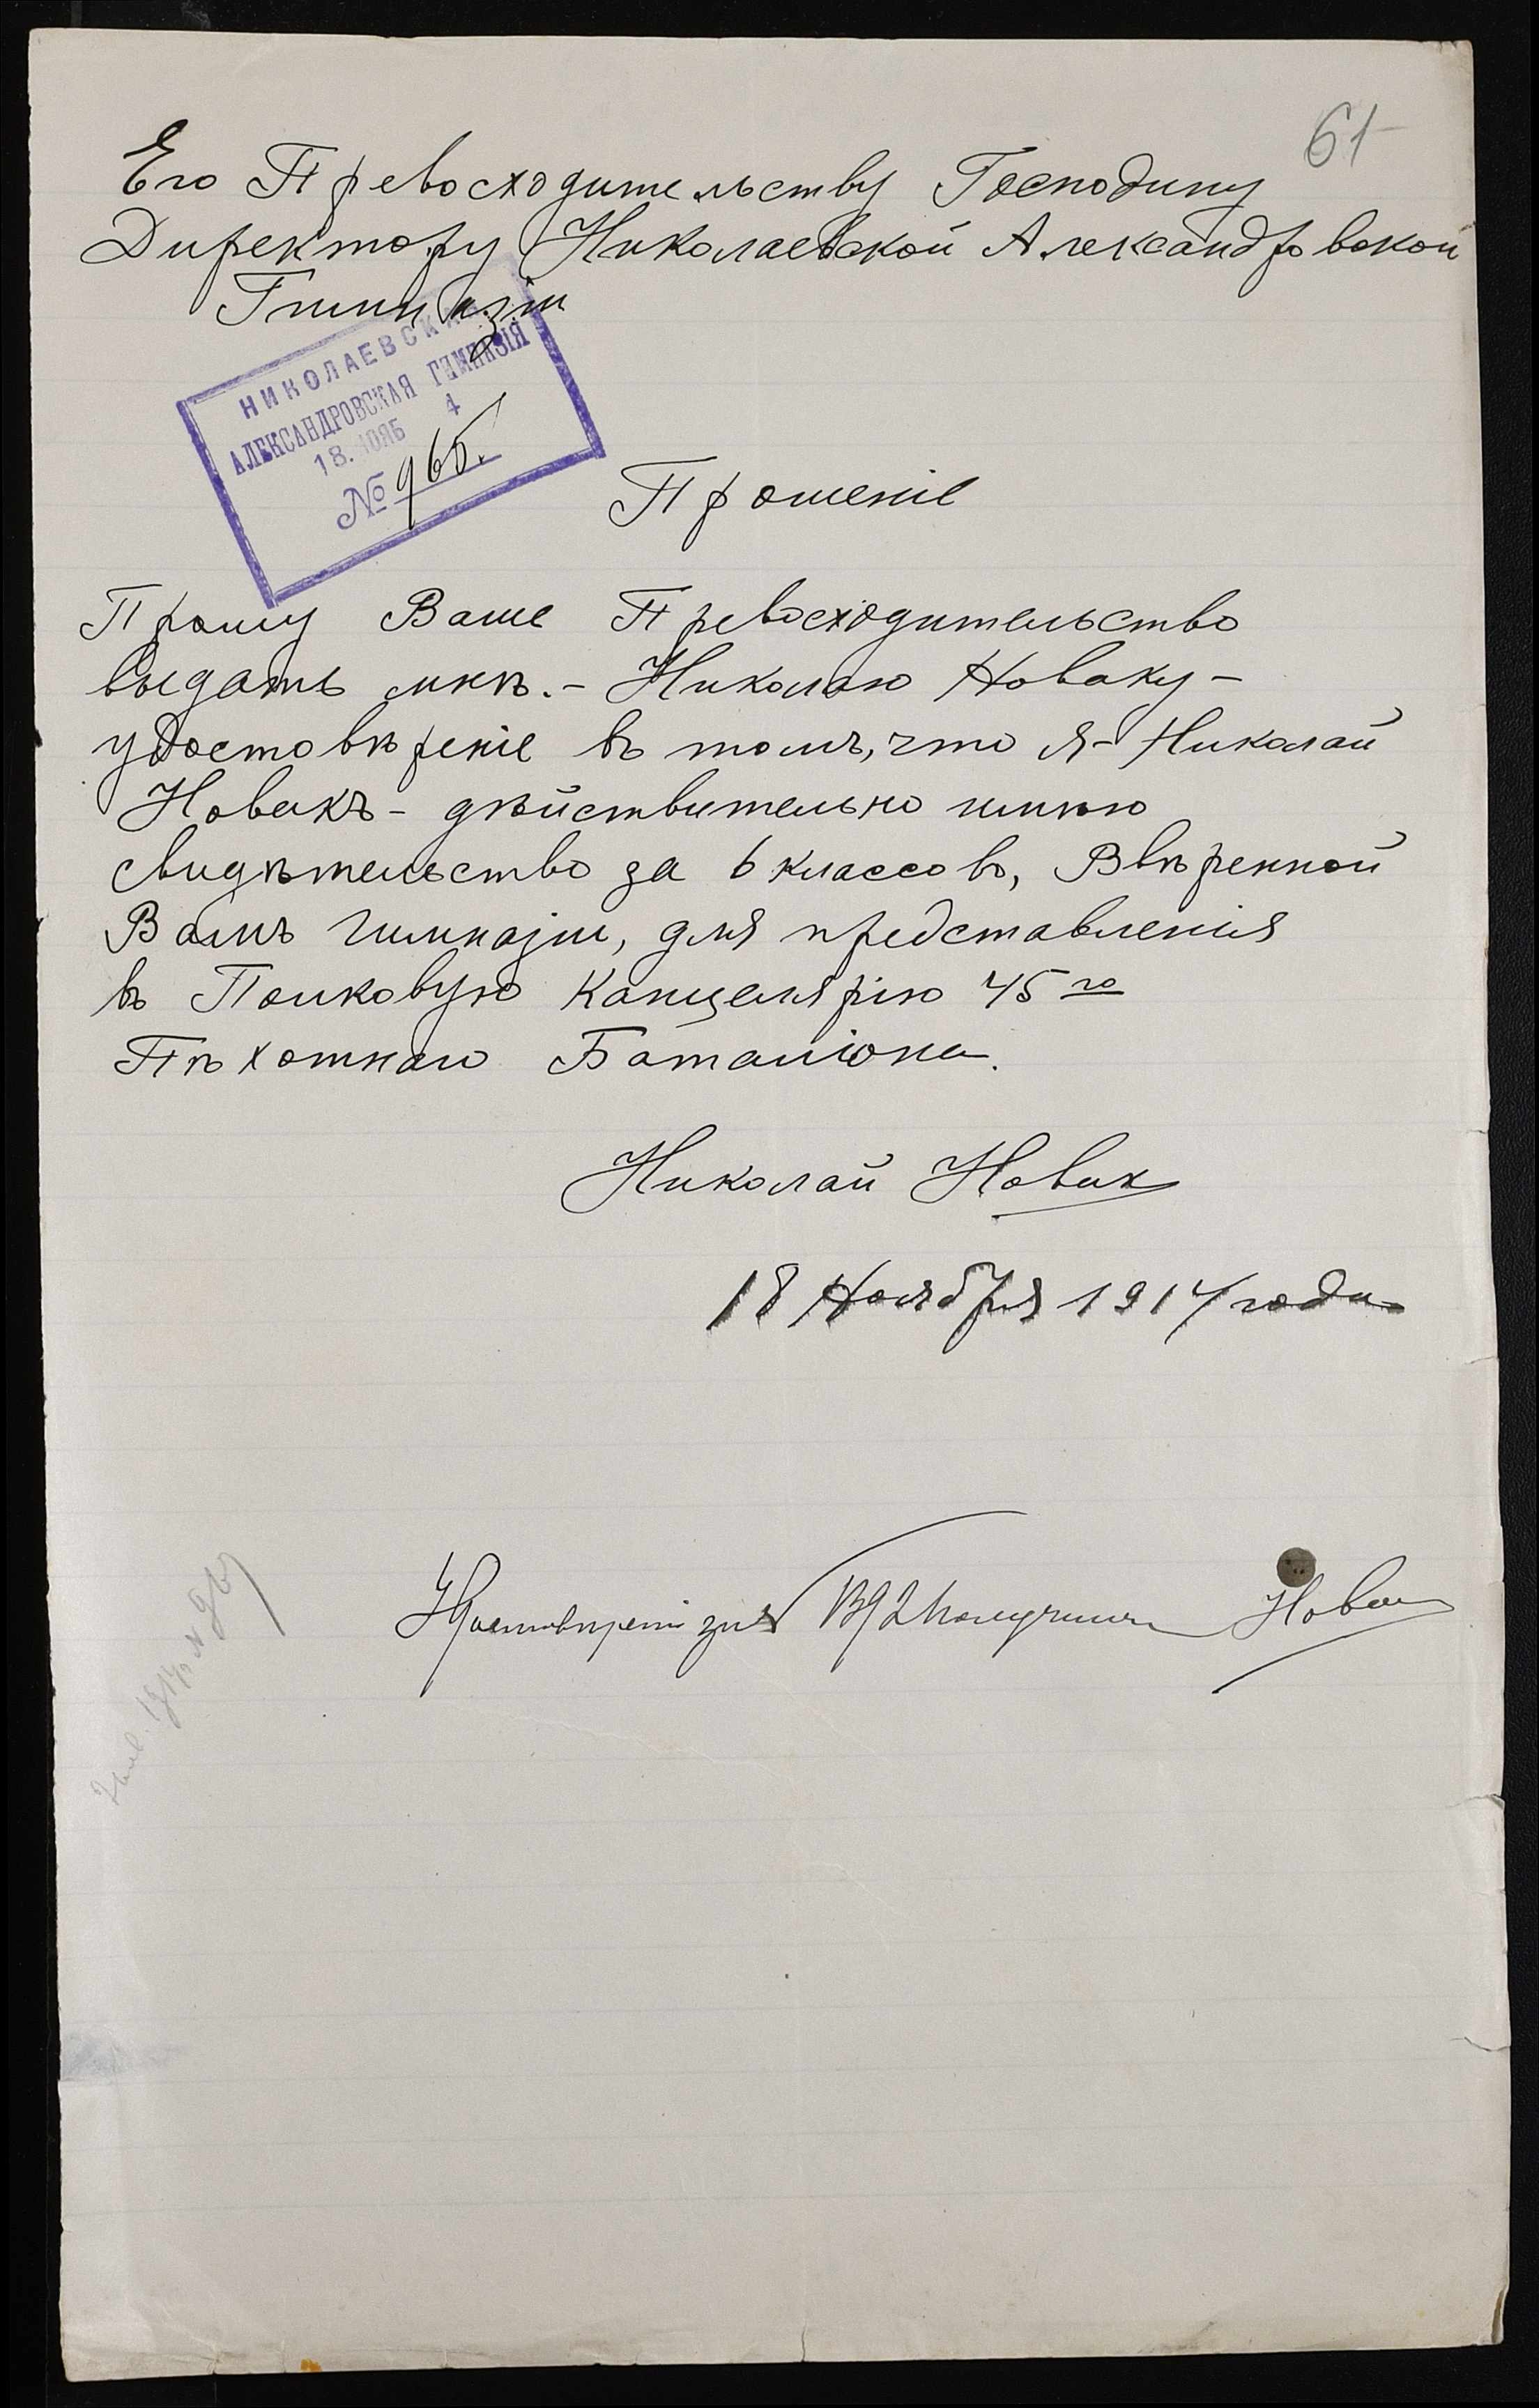 61
Его Превосходительству Господину
Директору Николаевской Александровской
Гимназіи
НИКОЛАЕВСКАЯ
АЛЕКСАНДРОВСКАЯ ГИМНАЗІЯ
18. НОЯБ 4
№ 965.
Прошеніе
Прошу Ваше Превосходительство
выдать мнѣ. - Николаю Новаку -
удостовѣреніе въ томъ, что я - Николай
Новакъ - дѣйствительно имѣю
свидѣтельство за 6 классовъ, Ввѣренной
Вамъ гимназіи, для представленія
въ Полковую Канцелярію 45го
Пѣхотнаго Баталіона.
Николай Новак
18 Ноября 1914 года
Удостовѣреніе за № получилъ Новак